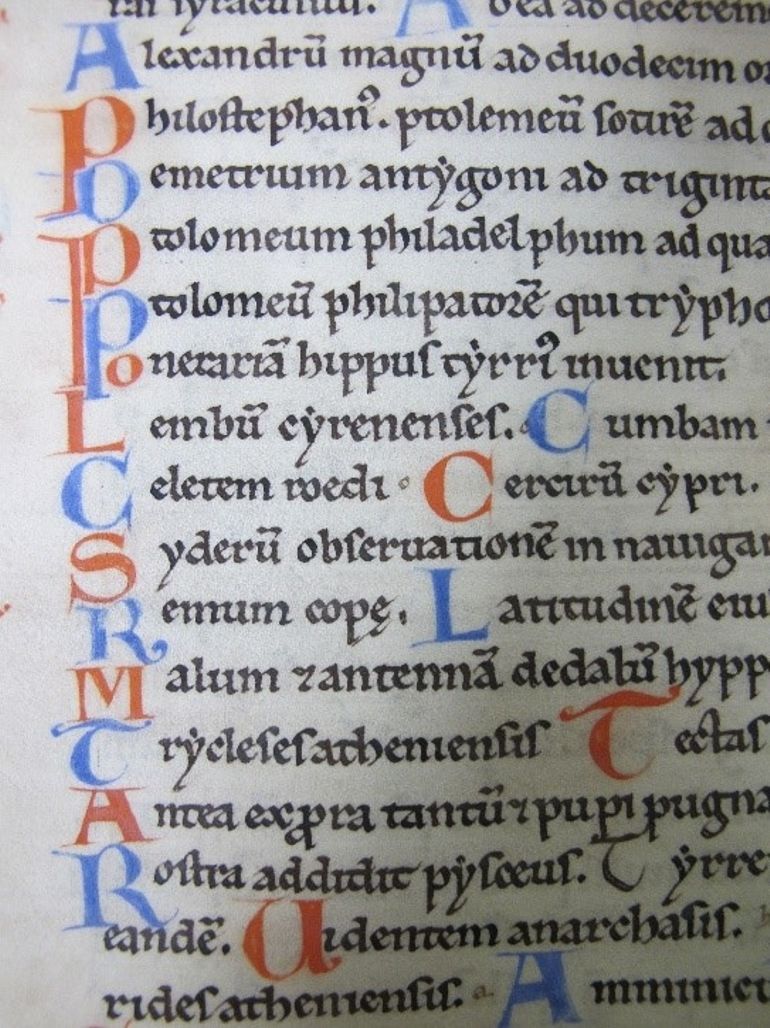 A b ea ad decerem
Alexandrū magnū ad duodecim or
Philostephanꝰ. ptolemeū sotirē ad
Demetrium antẏgoni ad triginta
Ptolomeum philadelphum ad qua
Ptolomeū philipatorē qui trẏpho
Onerariā hippus tẏrriꝰ inuenit.
Lembū cẏrenenses. Cumbam
Celetem roedi. Cercirū cẏpri.
Syderū obseruationē in nauigan
Remum copę. Latitudinē eiu
Malum ⁊ antennā dedalū hypp
Trẏcleses atheniensis Tectas
Antea ex ꝓra tantū ⁊ puppi pugna
Rostra addidit pẏsœus. Tẏrre
eandē. Uidentem anarchasis.
rides atheniensis. Amminict